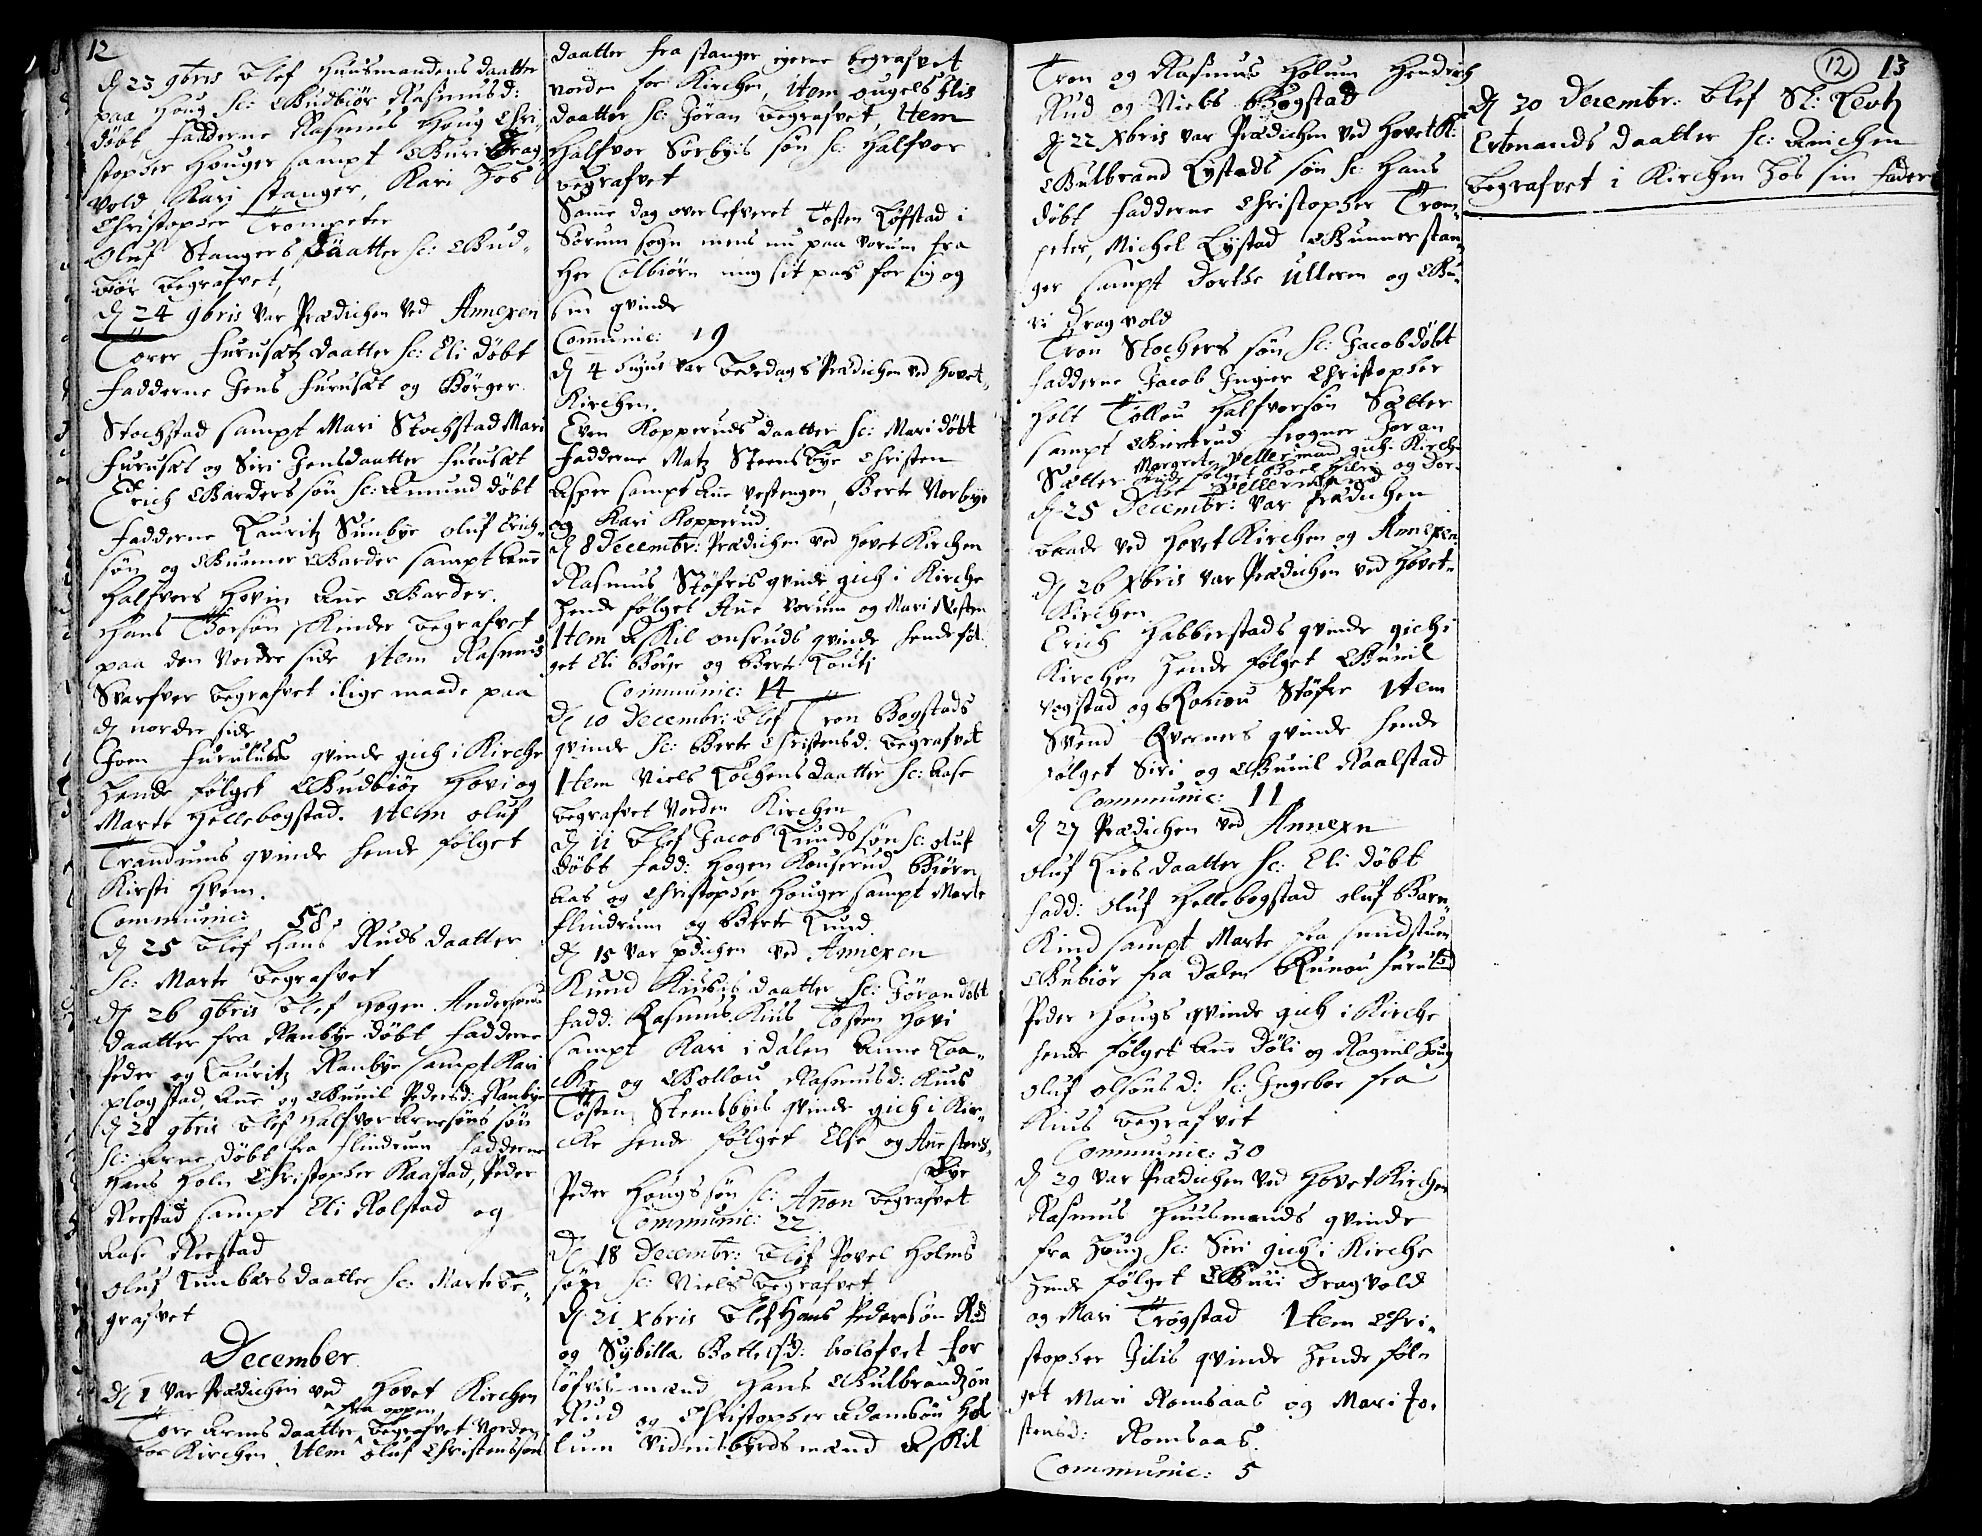 12
d 23 9bris blef Huusmandens daatter
paa Houg Sc: Gudbiør Rasmusd:
døbt fadderne Rasmus Houg Chri-
stopher Houger sampt Guri Drag-
vold Kari stanger, Kari hos
Christopher Trompeter
Oluf Stangers Daatter Sc: Gud-
biør begrafvet,
d 24 9bris var Prædichen ved Annexen
Torer Furusætz daatter Sc: Eli døbt
Fadderne Jens Furusæt og Børger
Stochstad sampt Mari Stochstad Mari
Furusæt og Siri Jensdaatter Furusæt
Erich Garders søn Sc: Amund døbt
Fadderne Lauritz Sundbye Oluf Erich-
søn og Gunner Garder sampt Ane
Halfvers Hovin Ane Garder.
Hans Thorsøn Kinder begrafvet
paa den Nordre side Item Rasmus
Svarfver begrafvet i lige maade paa
d nordre side
Joen Furuluds qvinde gich i Kirche
hende følget Gudbiør Hovi og
Marte Hellebogstad. Item Oluf
Trandums qvinde hende følget
Kirsti Hvem.
Communic: 58
d 25 blef Hans Ruds daatter
Sc: Marte begrafvet
d 26 9bris blef Hogen Andersøns
daatter fra Ranbye døbt fadderne
Peder og Lauritz Ranbye sampt Kari
plogstad Ane og Gunil Pedersd: Ranbye
d 28 9bris blef Halfvor Arnesøns søn
Sc: Arne døbt fra Flindrum fadderne
Hans Holm Christopher Raastad, Peder
Reestad sampt Eli Rolstad og
Aase Reestad
Oluf Lunbærs daatter Sc: Marte be-
grafvet
December
d 1 var Prædichen ved Hovet Kirchen
fra oppen
Tore Arens daatter begrafvet Norden
for Kirchen, Item Oluf Christenssøns
daatter fra stanger igiere begrafvet
norden for Kirchen, Item Engels Elis
daatter Sc: Jøran begrafvet, Item
Halfvor Sørbyis søn Sc: Halfvor
begrafvet
Same dag overlefveret Tosten Løfstad i
Sørum sogn mens nu paa Vorum fra
Her Colbiørn ning sit pas for sig og
sin qvinde
Communic: 19
d 4 hujus var Bededags Prædichen ved Hovet-
Kirchen.
Even Kopperuds daatter Sc: Mari døbt
Fadderne Matz Steensbye Christen
Asper sampt Ane Vestengen, Berte Norbye
og Kari Kopperud.
d 8 Decembr: Prædichen ved Hovet Kirchen
Rasmus Støfris qvinde gich i Kirche
hende følget Ane Vorum og Mari Nesten
Item Askil Onsruds qvinde hende føl-
get Eli Børje og Berte Kouti
Communic: 14
d 10 Decembr: blef Tron Bogstads
qvinde Sc: Berte Christensd: begrafvet
Item Niels Løchens daatter Sc: Aase
begrafvet Norden Kirchen
d 11 blef Jacob Lunds søn Sc: Oluf
døbt fadd: Hogen Konserud Biørn
Aas og Christopher Houger sampt Marte
Flindrum og Berte Lund.
d 15 var pdichen ved Annexen
Knud Kiusis daatter Sc: Jøran døbt
fadd: Rasmus Kius, Tosten Hovi
sampt Kari i dalen Anne Laa-
cke og Gollou Rasmusd: Kius
Tosten Stensbyis qvinde gich i Kir-
cke hende følget Else og Ane stens-
bye
Peder Hougs søn Sc: Anon begrafvet
Communic: 22
d 18 Decembr: blef Povel Holms
søn Sc: Niels begrafvet
d 21 Xbris blef Hans Pedersøn Rud
og Sybilla Bottelsd: trolofvet for
løfvis mænd Hans Gulbrandsøn
Rud og Christopher Adamsøn Hol
lum vidnisbyrdsmænd Askil
Tron og Rasmus Holum Hendrich
Rud og Niels Bogstad
d 22 Xbris var Prædichen ved Hovet K:
Gulbrand Lystads søn Sc: Hans
døbt fadderne Christopher Trom-
peter, Michel Lystad Gunner stan-
ger sampt Dorthe Ulleren og Gu-
ri Dragvold
Tron Stochers søn Sc: Jacob døbt
fadderne Jacob Ingier Christopher
Holt Tollou Halfvorsøn Sætter
sampt Giertrud Frogner Joran
Sætter Margrete Pellermand gich i Kirche
hinde følget Boel Hilri og Dor-
the Pellermand
d 25 Decembr: var Prædichen
baade ved Hovet Kirchen og Annexen
d 26 Xbris var Prædichen ved Hovet-
Kirchen
Erich Habberstads qvinde gich i
Kirchen hende følget Gunil
Vogstad og Ronnou Støfre Item
Svend Qverners qvinde hende
følget Siri og Gunil Raalstad
Communic: 11
d 27 Prædichen ved Annexn
Oluf Kies daatter Sc: Eli døbt
fadd: Oluf Hellebogstad Oluf Barn-
Kind sampt Marte fra sundstuen
Gubiør fra Dalen Runou Furulud
Peder Hougs qvinde gich i Kirche
hende følget Ane Døli og Ragnil Houg
Oluf Olsøns d: Sc: Ingebor fra
Kius begrafvet
Communic: 30
d 29 var Prædichen ved Hovet Kirchen
Rasmus Huusmands qvinde
fra Houg Sc: Siri gich i Kirche
hende følget Guri Dragvold
og Mari Trøgstad Item Chri-
stopher Jilis qvinde hende føl-
get Mari Romsaas og Mari Jo-
stensd: Romsaas.
Communic: 5
12 13
d 30 Decembr: blef Sl: Lentz
Ertmands daatter Sc: Anichen
begrafvet i Kirchen hos sin fader